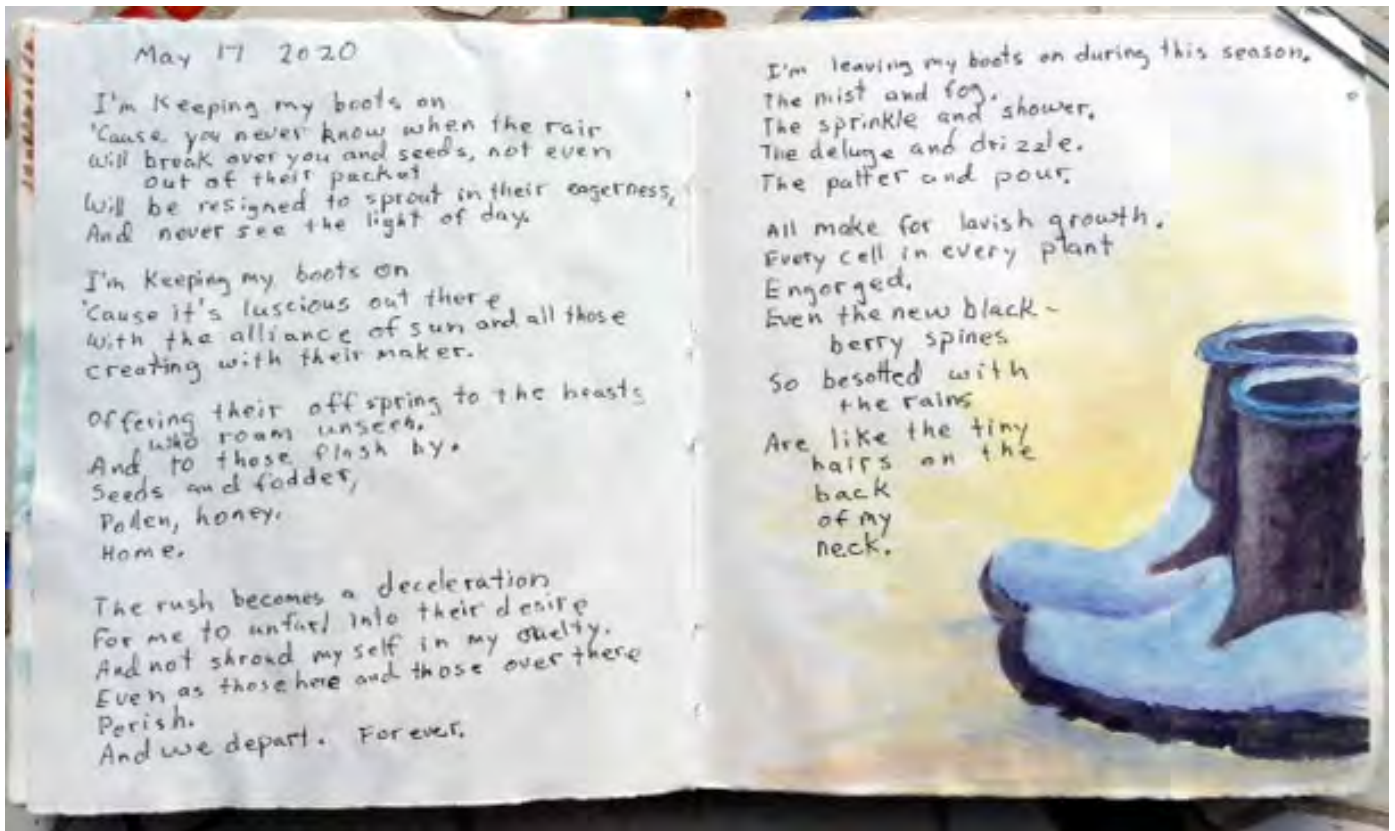 May 17 2020
I'm Keeping my boots on
'Cause you never know when the rair
will break over you and seeds, not even
out of their packet
Will be resigned to sprout in their eagerness,
And never see the light of day.
I'm Keeping my boots on
'Cause it's luscious out there
With the alliance of sun and all those
creating with their maker.
Offering their offspring to the beasts
who roam unseen.
And, to those flash by.
Seeds and fodder,
Pollen, honey.
Home.
The rush becomes a deceleration
For me to unfurl into their desire
And not shroud my self in my
Even as those here and those over there
Perish.
And we depart. Forever.
I'm leaving my boots on during this season.
The mist and fog.
The sprinkle and shower.
The deluge and drizzle.
The patter and pour.
All make for lavish growth.
Every cell in every plant
Engorged.
Even the new black-
berry spines
So besotted with
the rains
Are like the tiny
hairs on the
back
of my
neck.